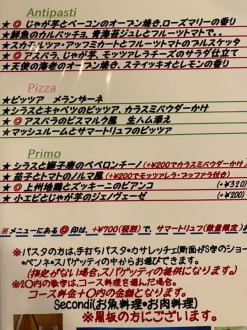 Antipasti
★@じゃが芋とベーコンのオーブン焼き,ローズマリーの香り
★鮮魚のカルパッチョ、青海苔ジュレとフルーツトマトで。。
★スカモルツァ・アッフミカートとフルーツトマトのカルスケッタ
★@アスパラ、じゃが芋、モッツァレラチーズのサラダ仕立て
★天使の海老のオーブン焼き、スティッキオとレモンの香り
Pizza
★ピッツァ メランザーネ
★シラスとキャベツのピッツァ、カラスミパウダーかけ
★@アスパラのビスマルク風 生ハム添え
★マッシュルームとサマートリュフのピッツァ
Primo
★シラスと獅子唐のペペロンチーノ(+¥200でカラスミパウダーかけ
★茄子とトマトのノルマ風 (+¥200でモッツァレラ・フッファラ付き)
★@上州地鶏とズッキーニのビアンコ (+¥320)
★小エビとじゃが芋のジェノヴェーゼ (+¥200)
※メニューにある@印は、+¥700(税別)で、サマートリュフ(数量限定)が
※パスタの方は、手打ちパスタ・カサレッチェ(断面がS字のショー
・ペンネ・スパゲッティの中からお選びできます。
(指定がない場合、スパゲッティの提供になります。)
※20円の数字は、コース料理を選んだ場合、
コース料金+○円の金額となります。
Secondi(お魚料理・お肉料理)
※黒板の方にございます。